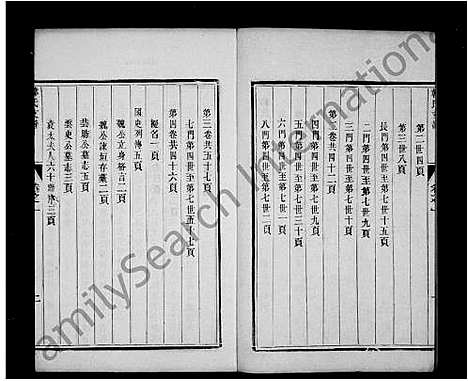 第二世四頁
第三世八頁
長門第四世至第七世十七頁
二門第四世至第七世九頁
三門第四世至第七世十一頁
第二卷共四十二頁
四門第四世至第七世九頁
五門第四世至第七世三十頁
六門第四世至第七世一頁
八門第四世至第七世二頁
第三卷共五十七頁
七門第四世至第七世五十七頁
第四卷共四十六頁
題名一頁
國史列傳五頁
魏公立身格言二頁
魏公諫垣存藁二頁
樊勛公墓志五頁
樊史公墓志三頁
袁太夫人六十壽序三頁
卷之一
二
FamilySearch International